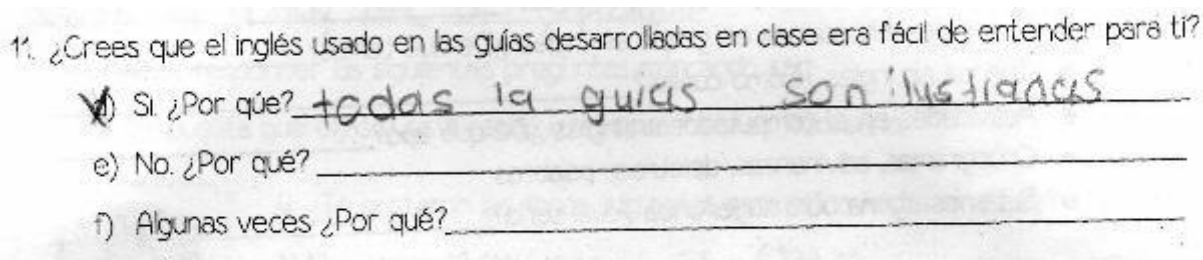 11. ¿Crees que el inglés usado en las guías desarrolladas en clase era fácil de entender para ti?
d) Si. ¿Por qúe? todas la guias son ilustradas
e) No. ¿Por qué?
f) Algunas veces ¿Por qué?